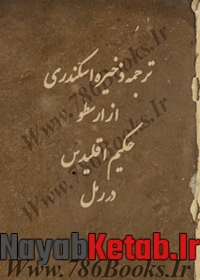 ترجمه ذخیره اسکندری
از ارسطو
حکیم اقلیدس
در رمل
www.786Books.ir
www.786Books.ir
NayabKetab.Ir
www.786Books.ir